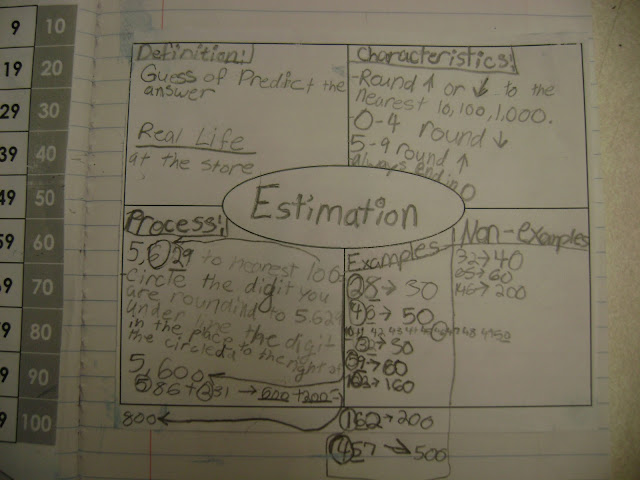 9 10
19 20
29 30
39 40
49 50
59 60
69 70
79 80
89 90
99 100
Definition:
Guess of Predict the
answer
Real Life
at the store
Characteristics:
-Round ↑ or ↓ to the
nearest 10, 100, 1,000.
-0-4 round ↓
5-9 round ↑
always end in 0
Estimation
Process:
5,629 to nearest 100
-Circle the digit you
are rounding to 5,629
Underline the digit
in the place to the right of
the circled
5,600
586 + 231 → 600 + 200 =
800
Examples
28 → 30
46 → 50
→ 30
→ 60
→ 160
162 → 200
457 → 500
Non-examples
32 → 40
65 → 60
146 → 200